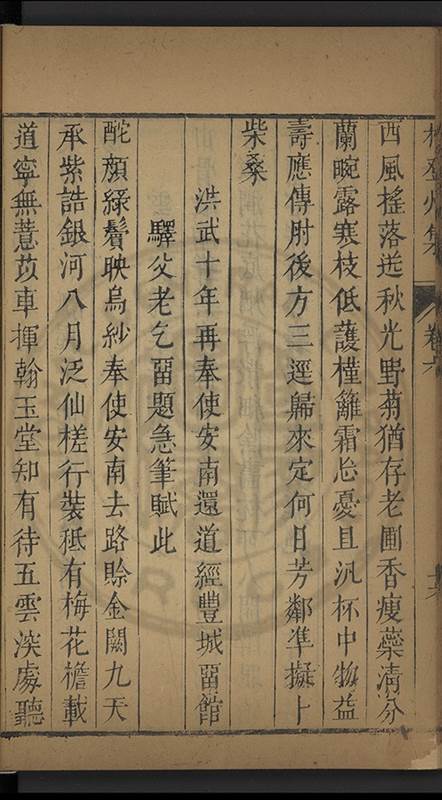 西風搖落送秋光野菊猶存老圃香瘦蘂清分
蘭畹露寒枝低護槿籬霜忘憂且汎杯中物益
壽應傳肘後方三逕歸來定何日芳鄰準擬卜
柴桑
洪武十年再奉使安南還道經豐城畱館
驛父老乞畱題急筆賦此
酡顔綠鬢映烏紗奉使安南去路賒金闕九天
承紫誥銀河八月泛仙槎行裝秪有梅花襜載
道寧無薏苡車揮翰玉堂知有待五雲深處聽
登州集
卷六